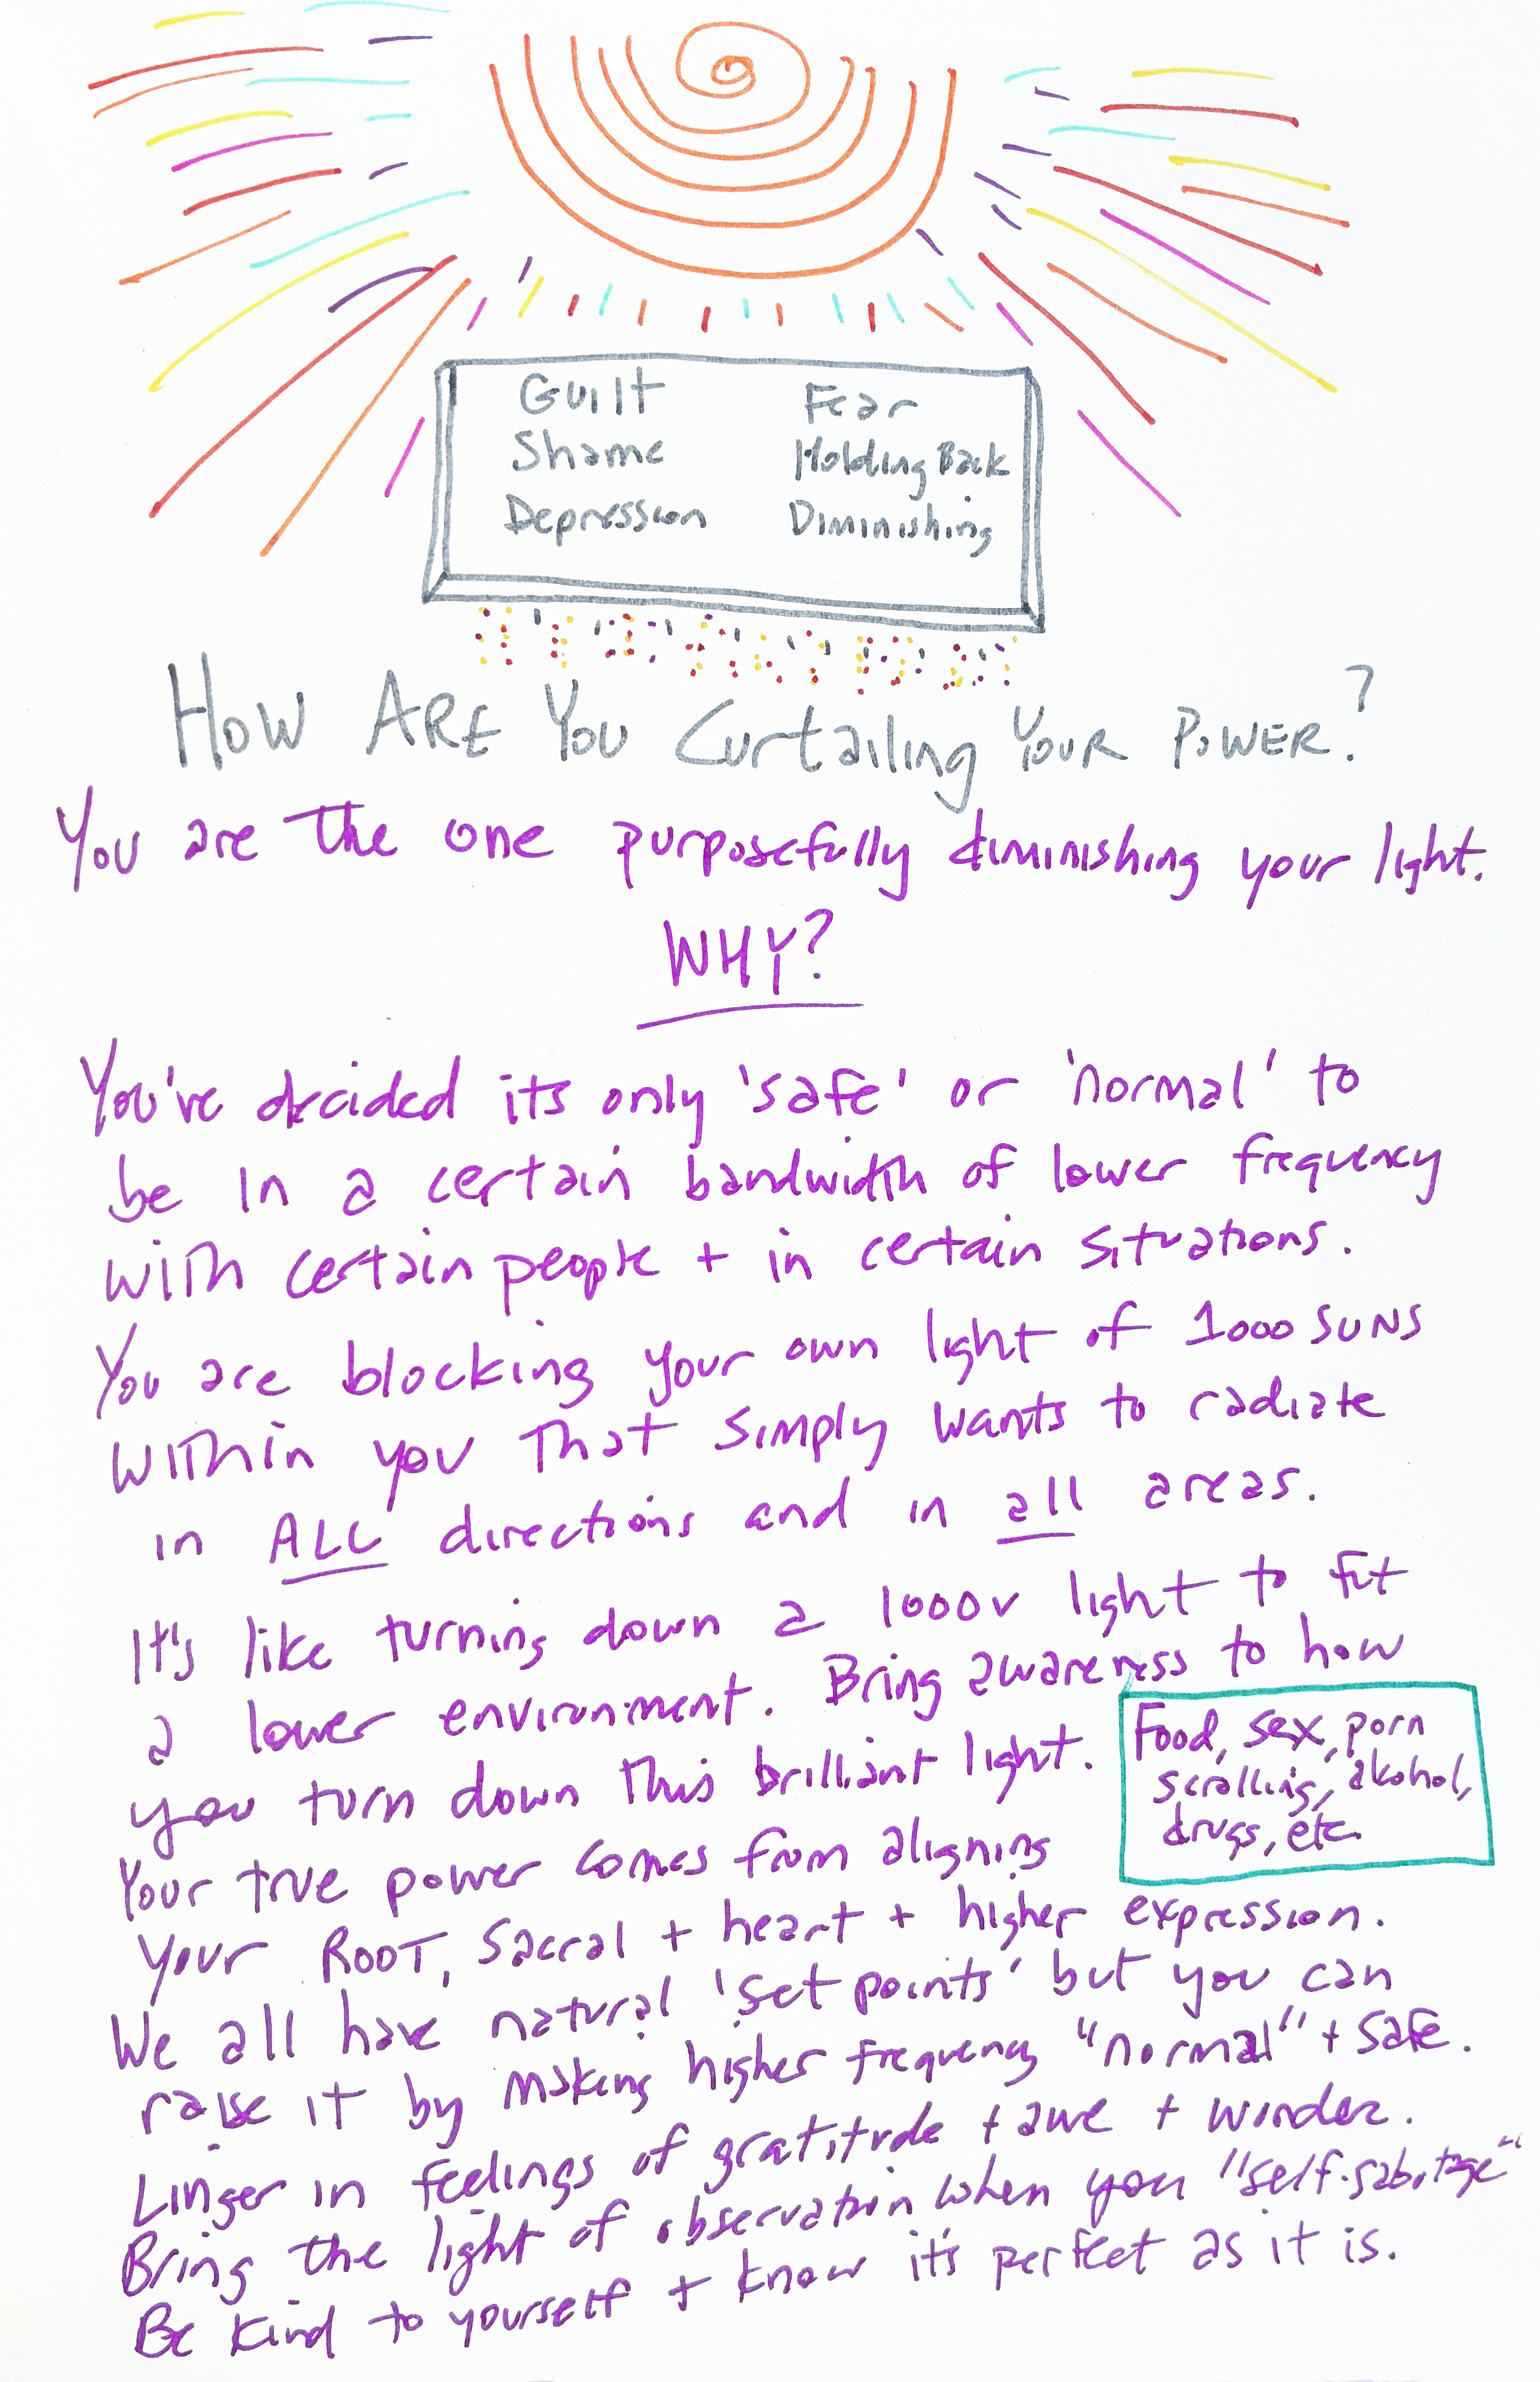 Guilt Fear
Shame Holding Back
Depression Diminishing
How ARE You Curtailing Your Power?
You are the one purposefully diminishing your light.
WHY?
You've decided its only 'safe' or 'normal' to
be in a certain bandwidth of lower frequency
with certain people + in certain situations.
You are blocking your own light of 1000 SUNS
within you that simply wants to radiate
in ALL directions and in all areas.
It's like turning down a 1000v light to fit
a lower environment. Bring awareness to how
you turn down this brilliant light.
Food, sex, porn
scrolling, alkohol,
drugs, etc.
Your true power comes from aligning
your ROOT, Sacral + heart + higher expression.
We all have natural 'set points' but you can
raise it by making higher frequency "normal" + safe.
Linger in feelings of gratitude + awe + wonder.
Bring the light of observation when you "self-sabotage"
Be kind to yourself + know it's perfect as it is.